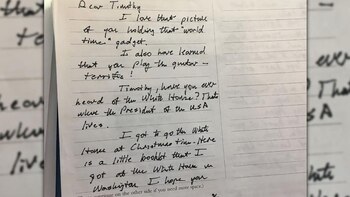 Dear Timothy
I love that picture
of you holding that "world
time" gadget.
I also have learned
that you play the guitar—
terrific!
Timothy, have you ever
heard of the White House? That's
where the President of the USA
lives.
I got to go the White
House at Christmas time. Here
is a little booklet that I
got at the White House in
Washington. I hope you
on the other side if you need more space.)